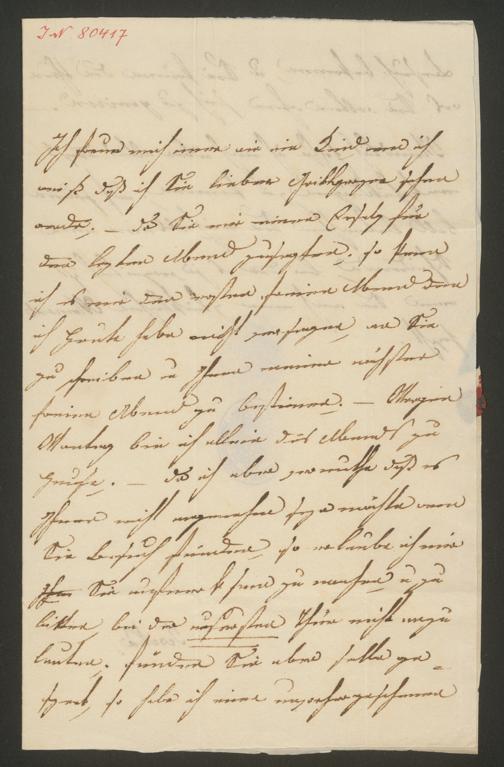 IN 80417
Ich freue mich immer wie ein Kind wenn ich
weiß daß ich Sie lieber Grillparzer sehen
werde. – da Sie mir einen Ersatz für
den letzten Abend zusagten, so kann
ich es mir den ersten freien Abend den
ich heute habe nicht versagen, an Sie
zu schreiben u Ihnen meine nächsten
freien Abend zu bestimmen. – Morgen
Montag bin ich allein des Abends zu
Hause. – da ich aber vermuthe daß es
Ihnen nicht angenehm seyn möchte wenn
Sie Besuch fänden, so erlaube ich mir
Sie aufmerksam zu machen u zu
bitten bei der äußersten Thüre nicht anzu
läuten, finden Sie aber selbe ge=
sperrt, so habe ich einen unvorhergesehenen